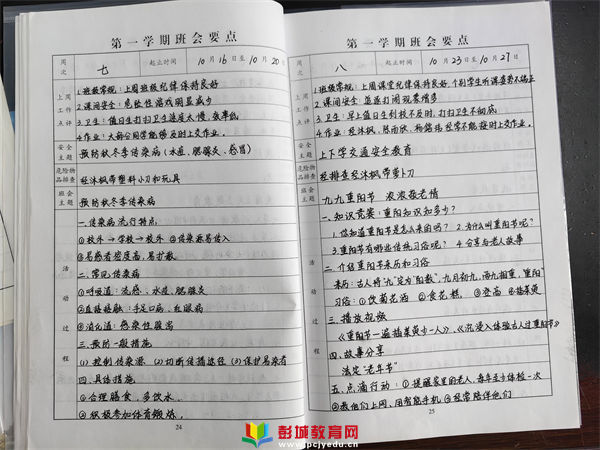 第一学期班会要点
周次 七 起止时间 10月16日至10月20日
上周工作点评
1.班级常规:上周班级纪律保持良好
2.课间安全:危险性游戏明显减少
3.卫生:值日生打扫卫生速度太慢,效率低
4.作业:大部分同学能够及时上交作业。
安全主题 预防秋冬季传染病(水痘、腮腺炎、感冒)
危险物品排查 经沐枫带塑料小刀和玩具
班会主题 预防秋冬季传染病
活动过程
一.传染病流行特点
①校外→学校→校外 ②传染源易传入
③易感者密度高,易扩散
二.常见传染病
①呼吸道:流感、水痘、腮腺炎
②直接接触:手足口病、红眼病
③消化道:感染性腹泻
三.预防一般措施
(1)控制传染源 (2)切断传播途径 (3)保护易感者
四.具体措施
①合理膳食,多饮水。
②积极参加体育锻炼。
24
第一学期班会要点
周次 八 起止时间 10月23日至10月27日
上周工作点评
1.班级常规:上周课堂纪律保持良好,个别学生听课姿势不端正
2.课间安全:追逐打闹现象增多
3.卫生:早上值日生到校不及时,打扫卫生不彻底
4.作业:经沐枫、经常不能按时上交作业。
安全主题 上下学交通安全教育
危险物品排查 经排查经沐枫带萝卜刀
班会主题 九九重阳节 浓浓敬老情
活动过程
一.知识竞赛:重阳知识知多少?
1.你知道重阳节是怎么来的吗? 2.为什么叫重阳节呢?
3.重阳节有哪些传统习俗呢? 4.分享与老人故事
二.介绍重阳节来历和习俗
来历:古人将"九"定为"阳数",九月初九,两九相重,重阳"
习俗:①饮菊花酒 ②食花糕 ③登高 ④插茱萸
三.播放视频
《重阳节—遍插茱萸少一人》、《沉浸入体验古人过重阳节》
四.故事分享
法定"老年节"
五.点滴行动:①提醒家里的老人,每年至少体检一次
②教他们上网、用智能手机 ③经常陪伴他们
25
彭城教育网
www.pcjyedu.cn